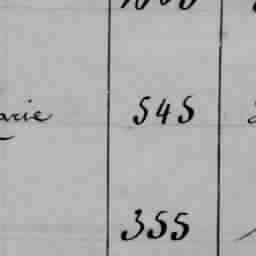 arie 545
355